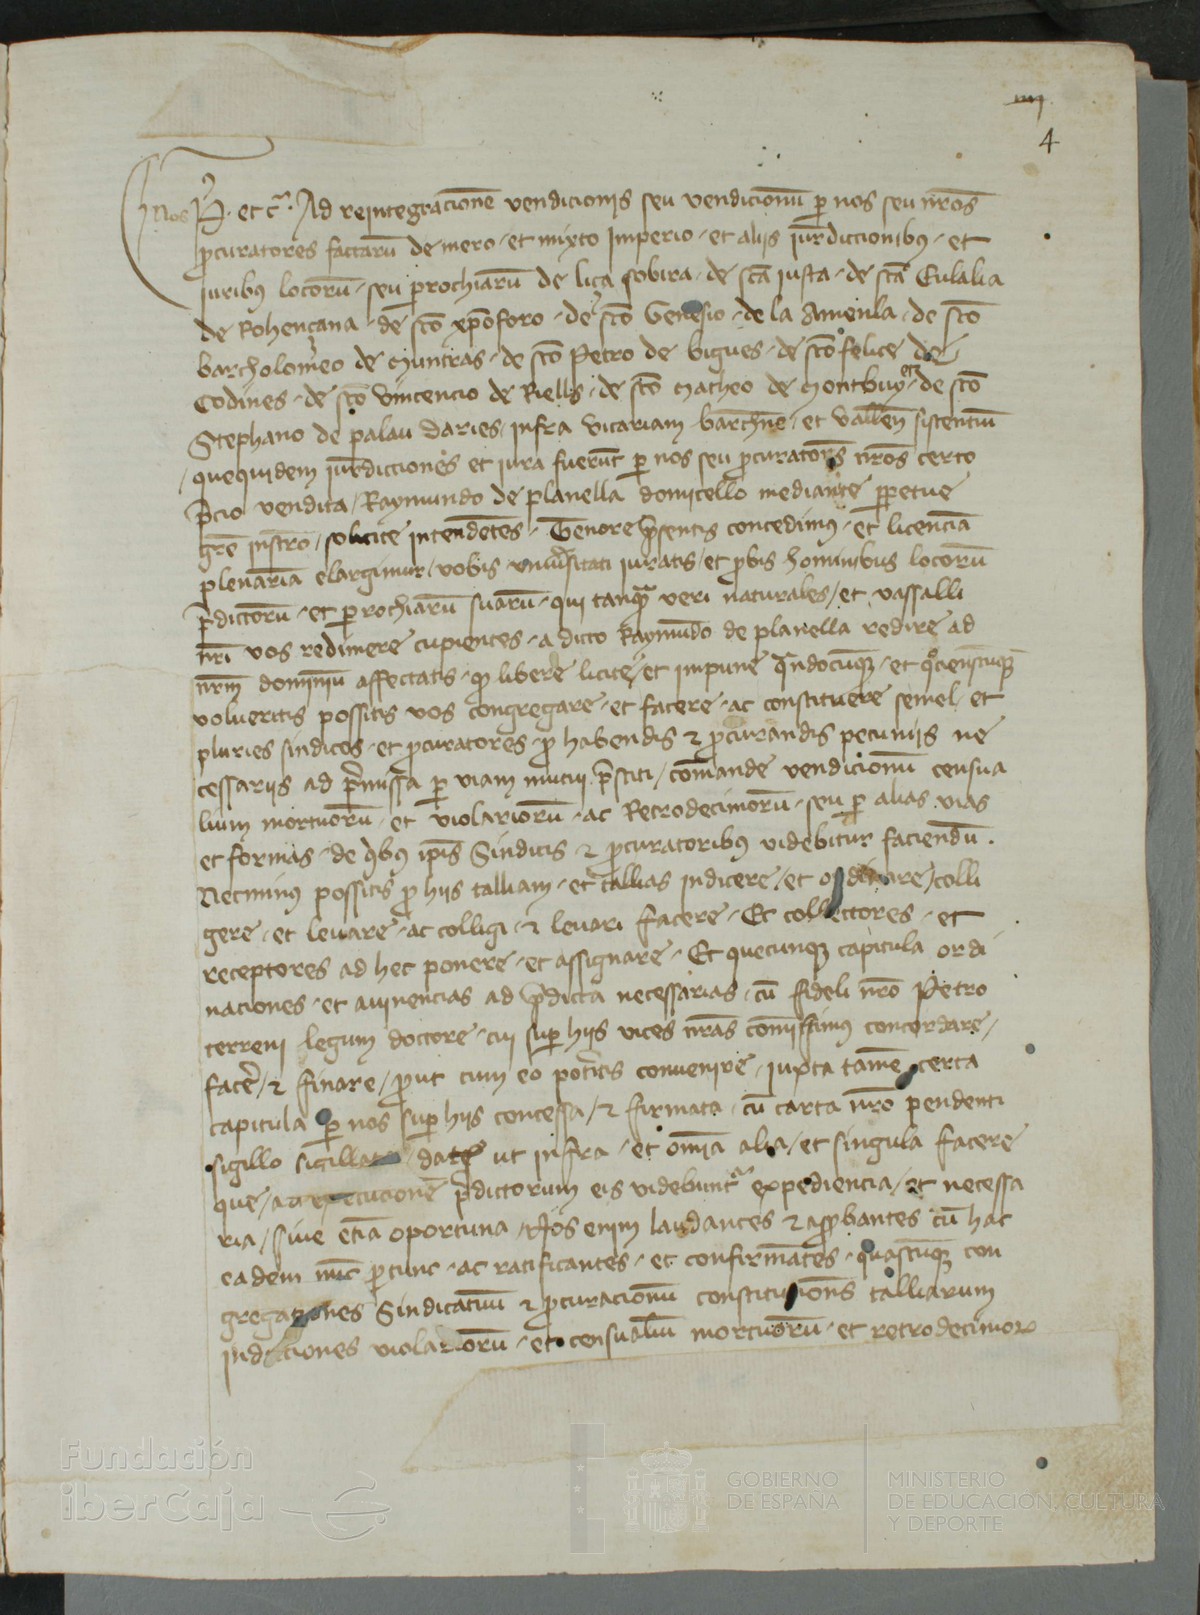 iiij
4
Nos P. et cª. Ad reintegracionē vendicionis seu vendicionū ꝑ nos seu nr̄os
ꝓcuratores factarū de mero et mixto Imperio et aliis iur̄diccionibus et
iuribus locorū seu ꝑrochiarū de liça sobira de sc̄a iusta de sc̄a Eulalia
de Rohençana de sc̄o xp̄oforo de sc̄o Genesio de la Amenla de sc̄o
bartholomeo de Muntras de sc̄o Petro de bigues de sc̄o felice de
Codines de sc̄o Vincencio de Riells de sc̄o Matheo de Montbuy et de sc̄o
Stephano de palau daries infra vicariam barch̄ne et vallen̄ sistentiū
quequidem iur̄dicciones et iura fuerūt ꝑ nos seu ꝓcuratores nr̄os certo
p̄cio vendita Raymundo de planella domicello mediante ꝑpetue
gr̄e instr̄o solicite intendētes Tenore p̄sentis concedimus et licenciā
plenariā elargimur vobis vniu̾sitati iuratis et ꝓbis hominibus locorū
p̄dictorū et ꝑrochiarū suarū qui tanqᵃ veri naturales et vassalli
nr̄i vos redimere cupientes a dicto Raymūdo de planella redire ad
nr̄m dominiū affectatis qꝫ libere licite et impune qᵃndocūqꝫ et qᵒcienscūqꝫ
volueritis possitis vos congregare et facere ac constituere semel et
pluries sindicos et ꝓcuratores ꝓ habendis ⁊ ꝓcurandis pecuniis ne
cessariis ad p̄missa ꝑ viam mutui p̄stiti comande vendicionū censua
lium mortuorū et violariorū ac Retrodecimorū seu ꝑ alias vias
et formas de qⁱbus ip̄is Sindicis ⁊ ꝓcuratoribus videbitur faciendū.
Necminus possitis ꝓ hiis talliam et tallias indicere et ordinare colli
gere et levare ac colligi ⁊ levari facere Et collectores et
receptores ad hec ponere et assignare Et quecunqꝫ capitula ordi
naciones et avinencias ad p̄dicta necessarias cū fideli nr̄o Petro
terreni legum doctore cui suꝑ hiis vices nr̄as comissimus concordare
facere ⁊ finare ꝓut cum eo pot̾itis convenire iuxta tamē certa
capitula ꝑ nos suꝑ hiis concessa ⁊ firmata cū carta nr̄o pendenti
sigillo sigillata dat̄ ut infra et om̄ia alia et singula facere
que ad execucionē p̄dictorum eis videbuntᵘʳ expediencia et necessa
ria sive etiā oportuna Nos enim laudantes ⁊ aꝓbantes cū hac
eadem nūc ꝓtunc ac ratificantes et confirmātes quascūqꝫ con
gregaciones Sindicatuū ⁊ ꝓcuracionū constituciones talliarum
indicciones violariorū et censualiū mortuorū et retrodecimoꝝ
Fundación
iberCaja
GOBIERNO
DE ESPAÑA
MINISTERIO
DE EDUCACIÓN, CULTURA
Y DEPORTE